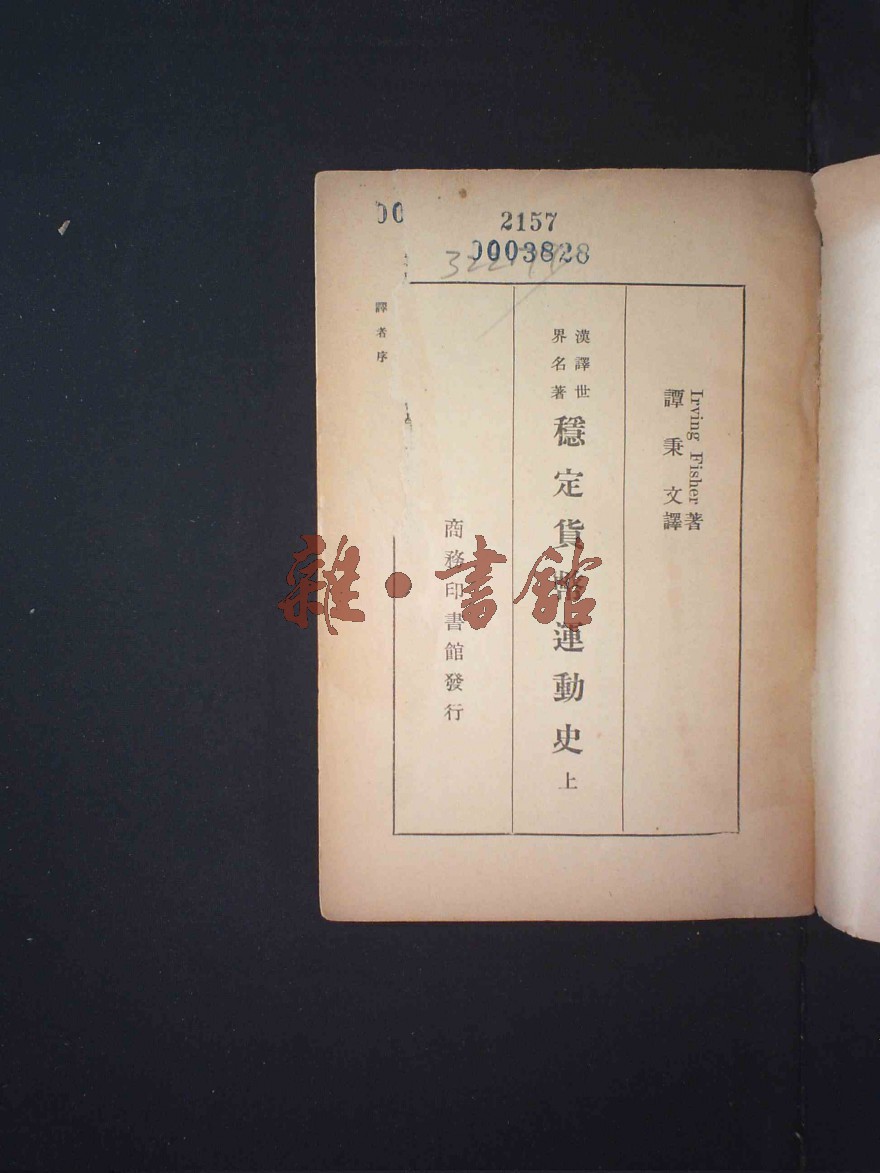 2157
0003828
00
譯者序
Irving Fisher 著
譚秉文譯
漢譯世
界名著
穩定貨幣運動史 上
商務印書館發行
雜·書館